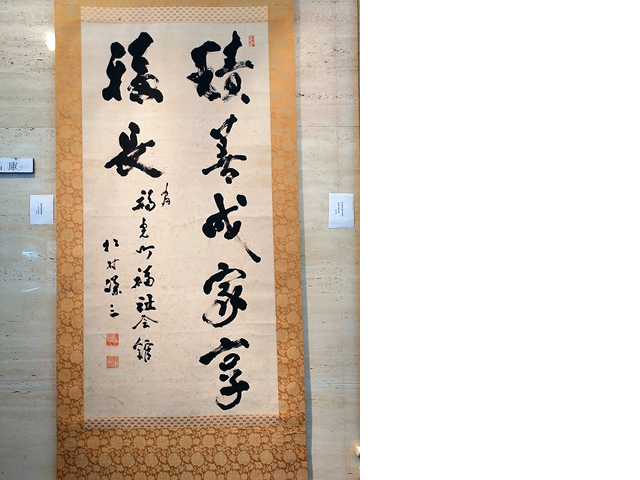 積善成家享
福長
為
福光町福祉会館
松村謙三